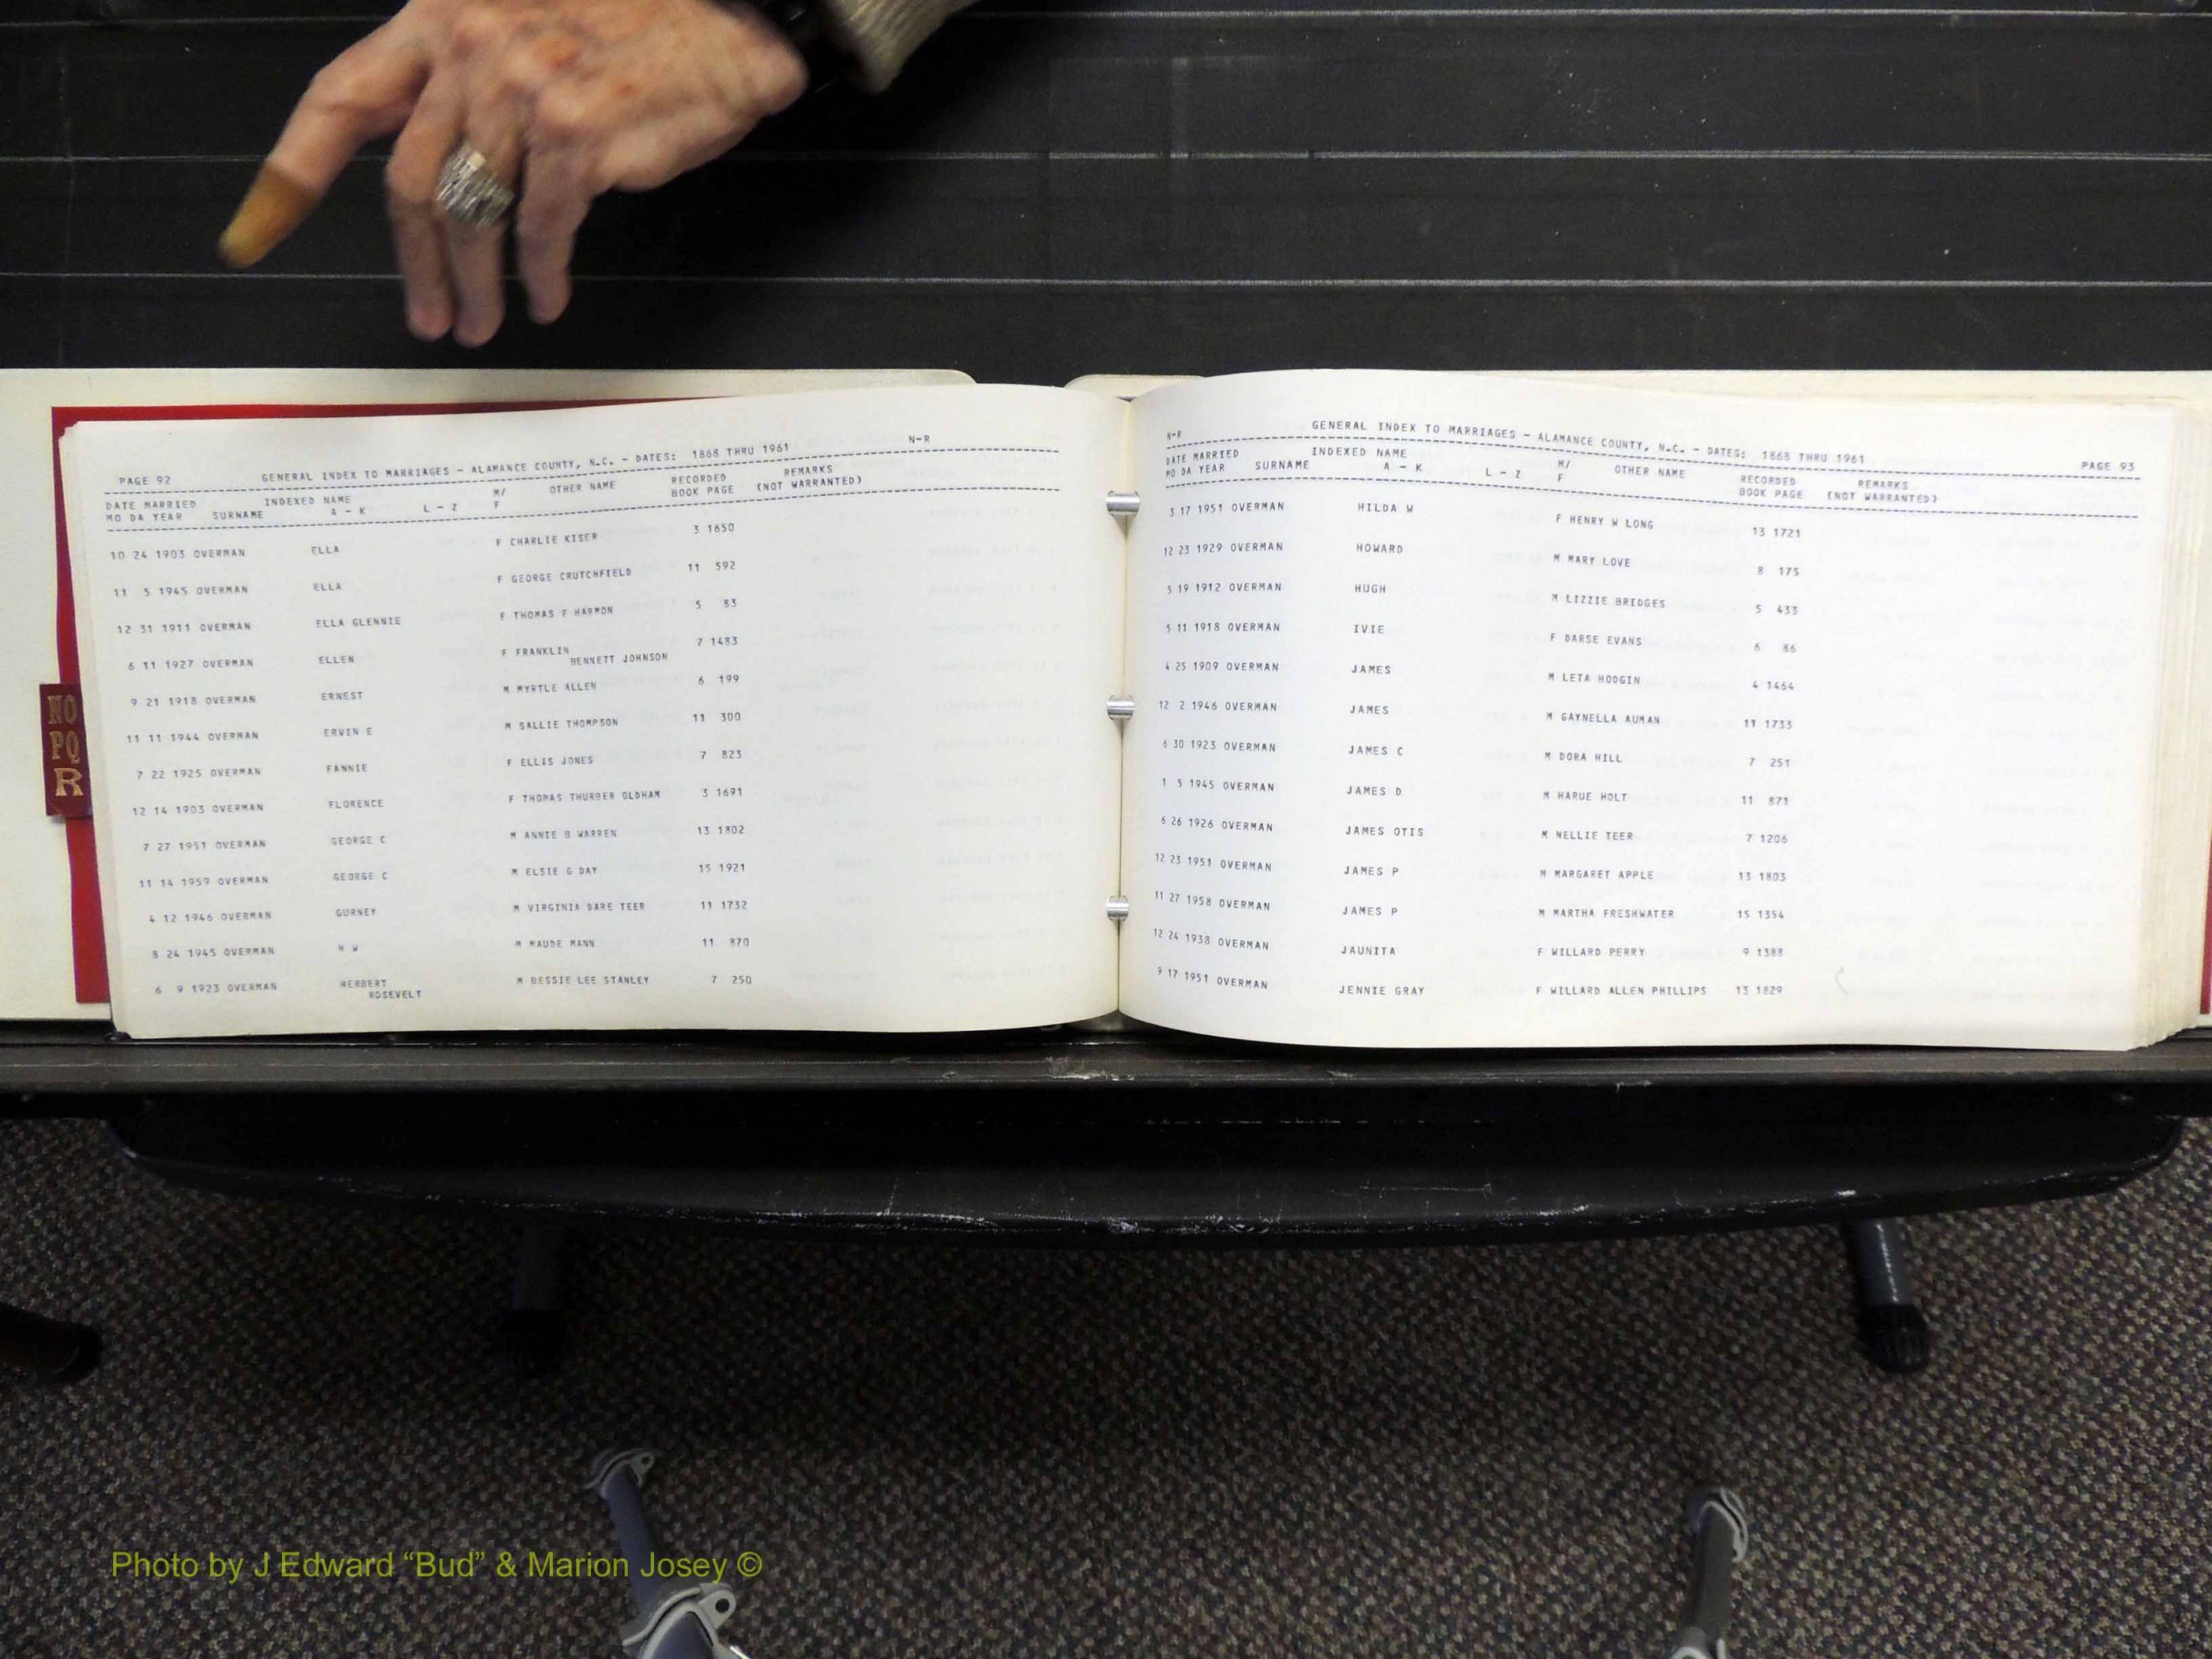 PAGE 92 GENERAL INDEX TO MARRIAGES - ALAMANCE COUNTY, N.C. - DATES: 1868 THRU 1961 N-R
DATE MARRIED INDEXED NAME M/ OTHER NAME RECORDED REMARKS
MO DA YEAR SURNAME A - K L - Z F BOOK PAGE (NOT WARRANTED)
10 24 1903 OVERMAN ELLA F CHARLIE KISER 3 1650
11 5 1945 OVERMAN ELLA F GEORGE CRUTCHFIELD 11 592
12 31 1911 OVERMAN ELLA GLENNIE F THOMAS F HARMON 5 83
6 11 1927 OVERMAN ELLEN F FRANKLIN 7 1483
BENNETT JOHNSON
9 21 1918 OVERMAN ERNEST M MYRTLE ALLEN 6 199
11 11 1944 OVERMAN ERVIN E M SALLIE THOMPSON 11 300
7 22 1925 OVERMAN FANNIE F ELLIS JONES 7 823
12 14 1903 OVERMAN FLORENCE F THOMAS THURBER OLDHAM 3 1691
7 27 1951 OVERMAN GEORGE C M ANNIE B WARREN 13 1802
11 14 1959 OVERMAN GEORGE C M ELSIE G DAY 15 1921
4 12 1946 OVERMAN GURNEY M VIRGINIA DARE TEER 11 1732
8 24 1945 OVERMAN H W M MAUDE MANN 11 870
6 9 1923 OVERMAN HERBERT M BESSIE LEE STANLEY 7 250
ROSEVELT
NO
PQ
R
N-R GENERAL INDEX TO MARRIAGES - ALAMANCE COUNTY, N.C. - DATES: 1868 THRU 1961 PAGE 93
DATE MARRIED INDEXED NAME M/ OTHER NAME RECORDED REMARKS
MO DA YEAR SURNAME A - K L - Z F BOOK PAGE (NOT WARRANTED)
3 17 1951 OVERMAN HILDA W F HENRY W LONG 13 1721
12 23 1929 OVERMAN HOWARD M MARY LOVE 8 175
5 19 1912 OVERMAN HUGH M LIZZIE BRIDGES 5 433
5 11 1918 OVERMAN IVIE F DARSE EVANS 6 86
4 25 1909 OVERMAN JAMES M LETA HODGIN 4 1464
12 2 1946 OVERMAN JAMES M GAYNELLA AUMAN 11 1733
6 30 1923 OVERMAN JAMES C M DORA HILL 7 251
1 5 1945 OVERMAN JAMES D M HARUE HOLT 11 871
6 26 1926 OVERMAN JAMES OTIS M NELLIE TEER 7 1206
12 23 1951 OVERMAN JAMES P M MARGARET APPLE 13 1803
11 27 1958 OVERMAN JAMES P M MARTHA FRESHWATER 15 1354
12 24 1938 OVERMAN JAUNITA F WILLARD PERRY 9 1388
9 17 1951 OVERMAN JENNIE GRAY F WILLARD ALLEN PHILLIPS 13 1829
Photo by J Edward “Bud” & Marion Josey ©